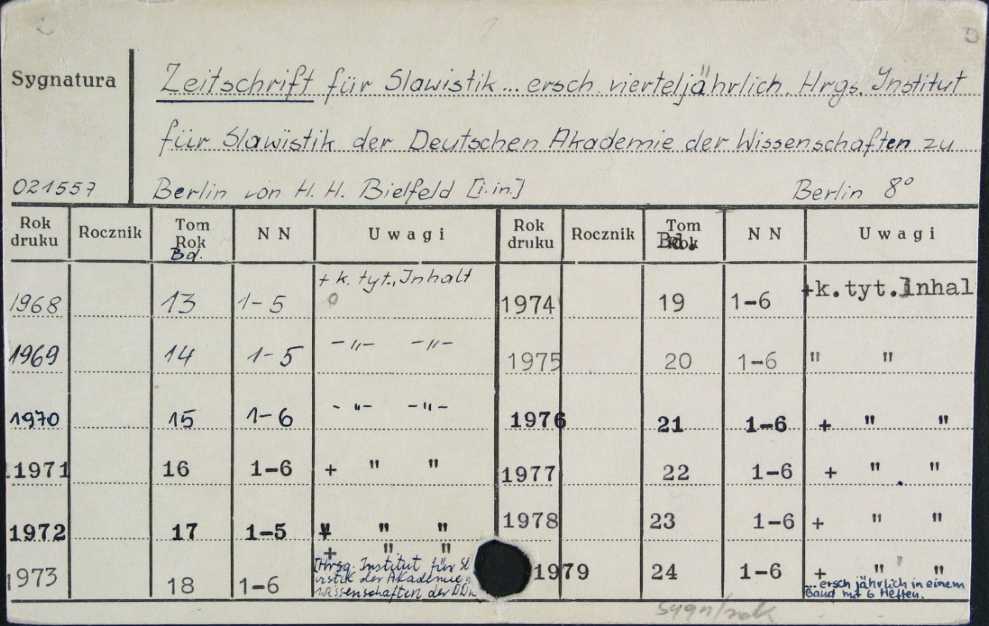 Sygnatura
Zeitschrift für Slawistik... ersch vierteljährlich. Hrgs. Institut
für Slawistik der Deutschen Akademie der Wissenschaften zu
021557 Berlin von H. H. Bielfeld [i. in.] Berlin 8°
Rok druku Rocznik Tom Rok Bd. N N Uwagi Rok druku Rocznik Tom Rok Bd. N N Uwagi
1968 13 1-5 + k. tyt., Inhalt 1974 19 1-6 +k.tyt.Inhal
1969 14 1-5 -"- -"- 1975 20 1-6 " "
1970 15 1-6 -"- -"- 1976 21 1-6 + " "
1971 16 1-6 + " " 1977 22 1-6 + " "
1972 17 1-5 + " " 1978 23 1-6 + " "
1973 18 1-6 + " " 1979 24 1-6 + " "
Hrsg. Institut für Sl
istik der Akademie
Wissenschaften der DDR
...ersch jährlich in einem
Band mit 6 Heften.
sygn/rok